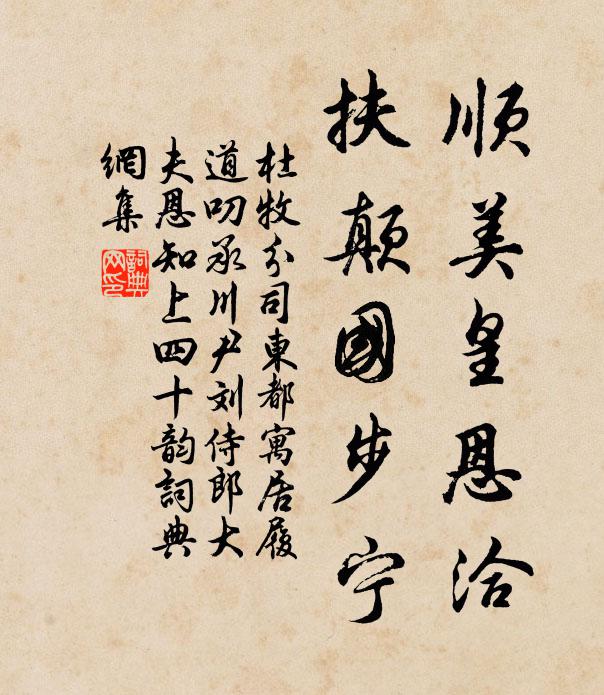 順美皇恩洽
扶颠國步宁
杜牧分司東都寓居履
道叨承川尹刘侍郎大
夫恩知上四十韵詞典
網集
詞典網印